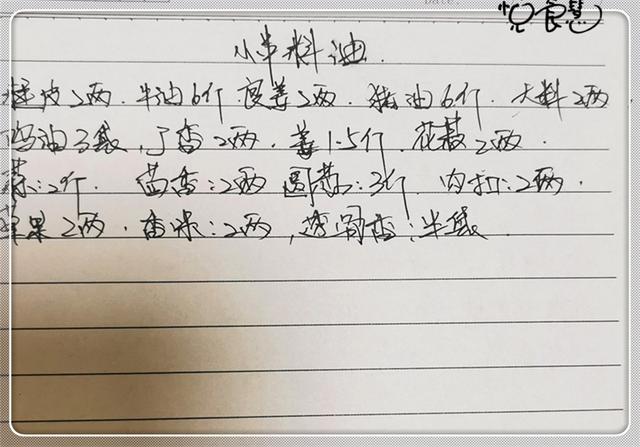 悦食慧
Date.
小串料油.
桂皮2两. 牛油6斤 良姜2两. 猪油6斤. 大料2两
鸡油3袋, 丁香2两. 姜1.5斤. 花椒2两.
:2斤. 茴香:2两 圆葱:3斤. 肉扣:2两.
草果2两. 香味:2两, 透骨香:半袋.